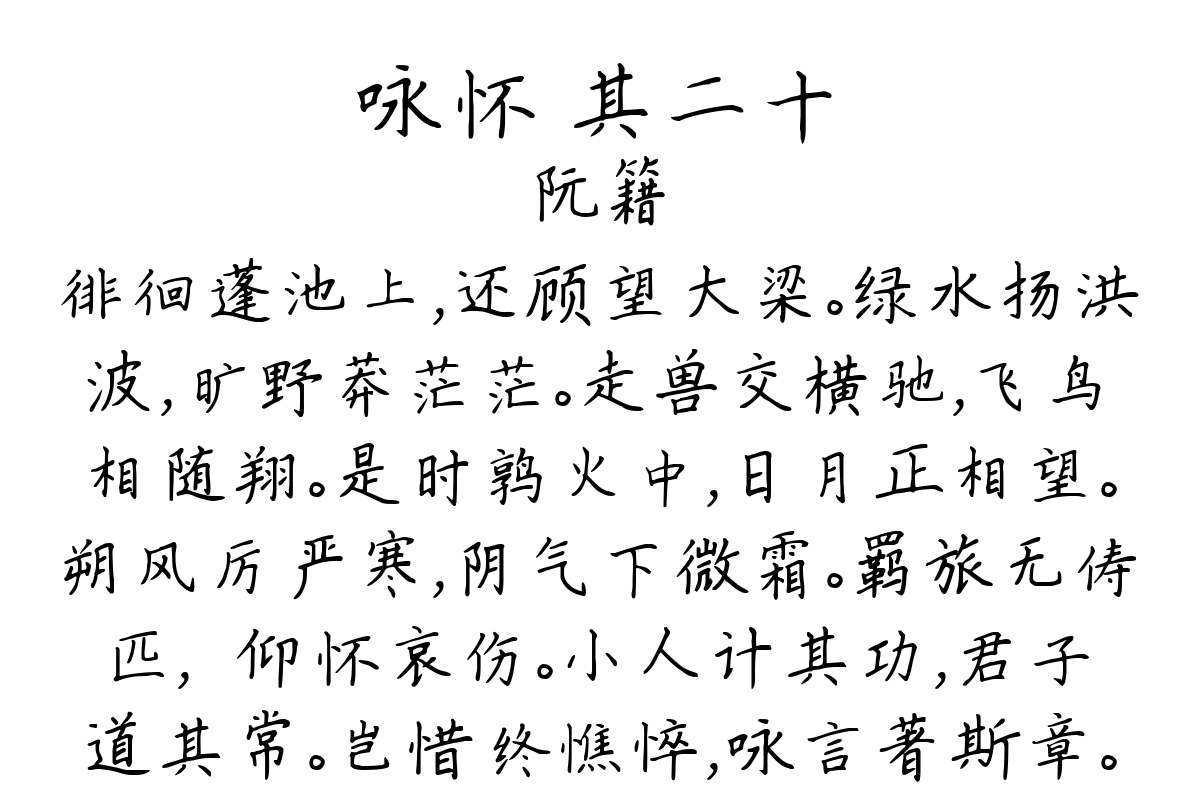 咏怀 其二十
阮籍
徘徊蓬池上,还顾望大梁。绿水扬洪
波,旷野莽茫茫。走兽交横驰,飞鸟
相随翔。是时鹑火中,日月正相望。
朔风厉严寒,阴气下微霜。羁旅无俦
匹, 仰怀哀伤。小人计其功,君子
道其常。岂惜终憔悴,咏言著斯章。